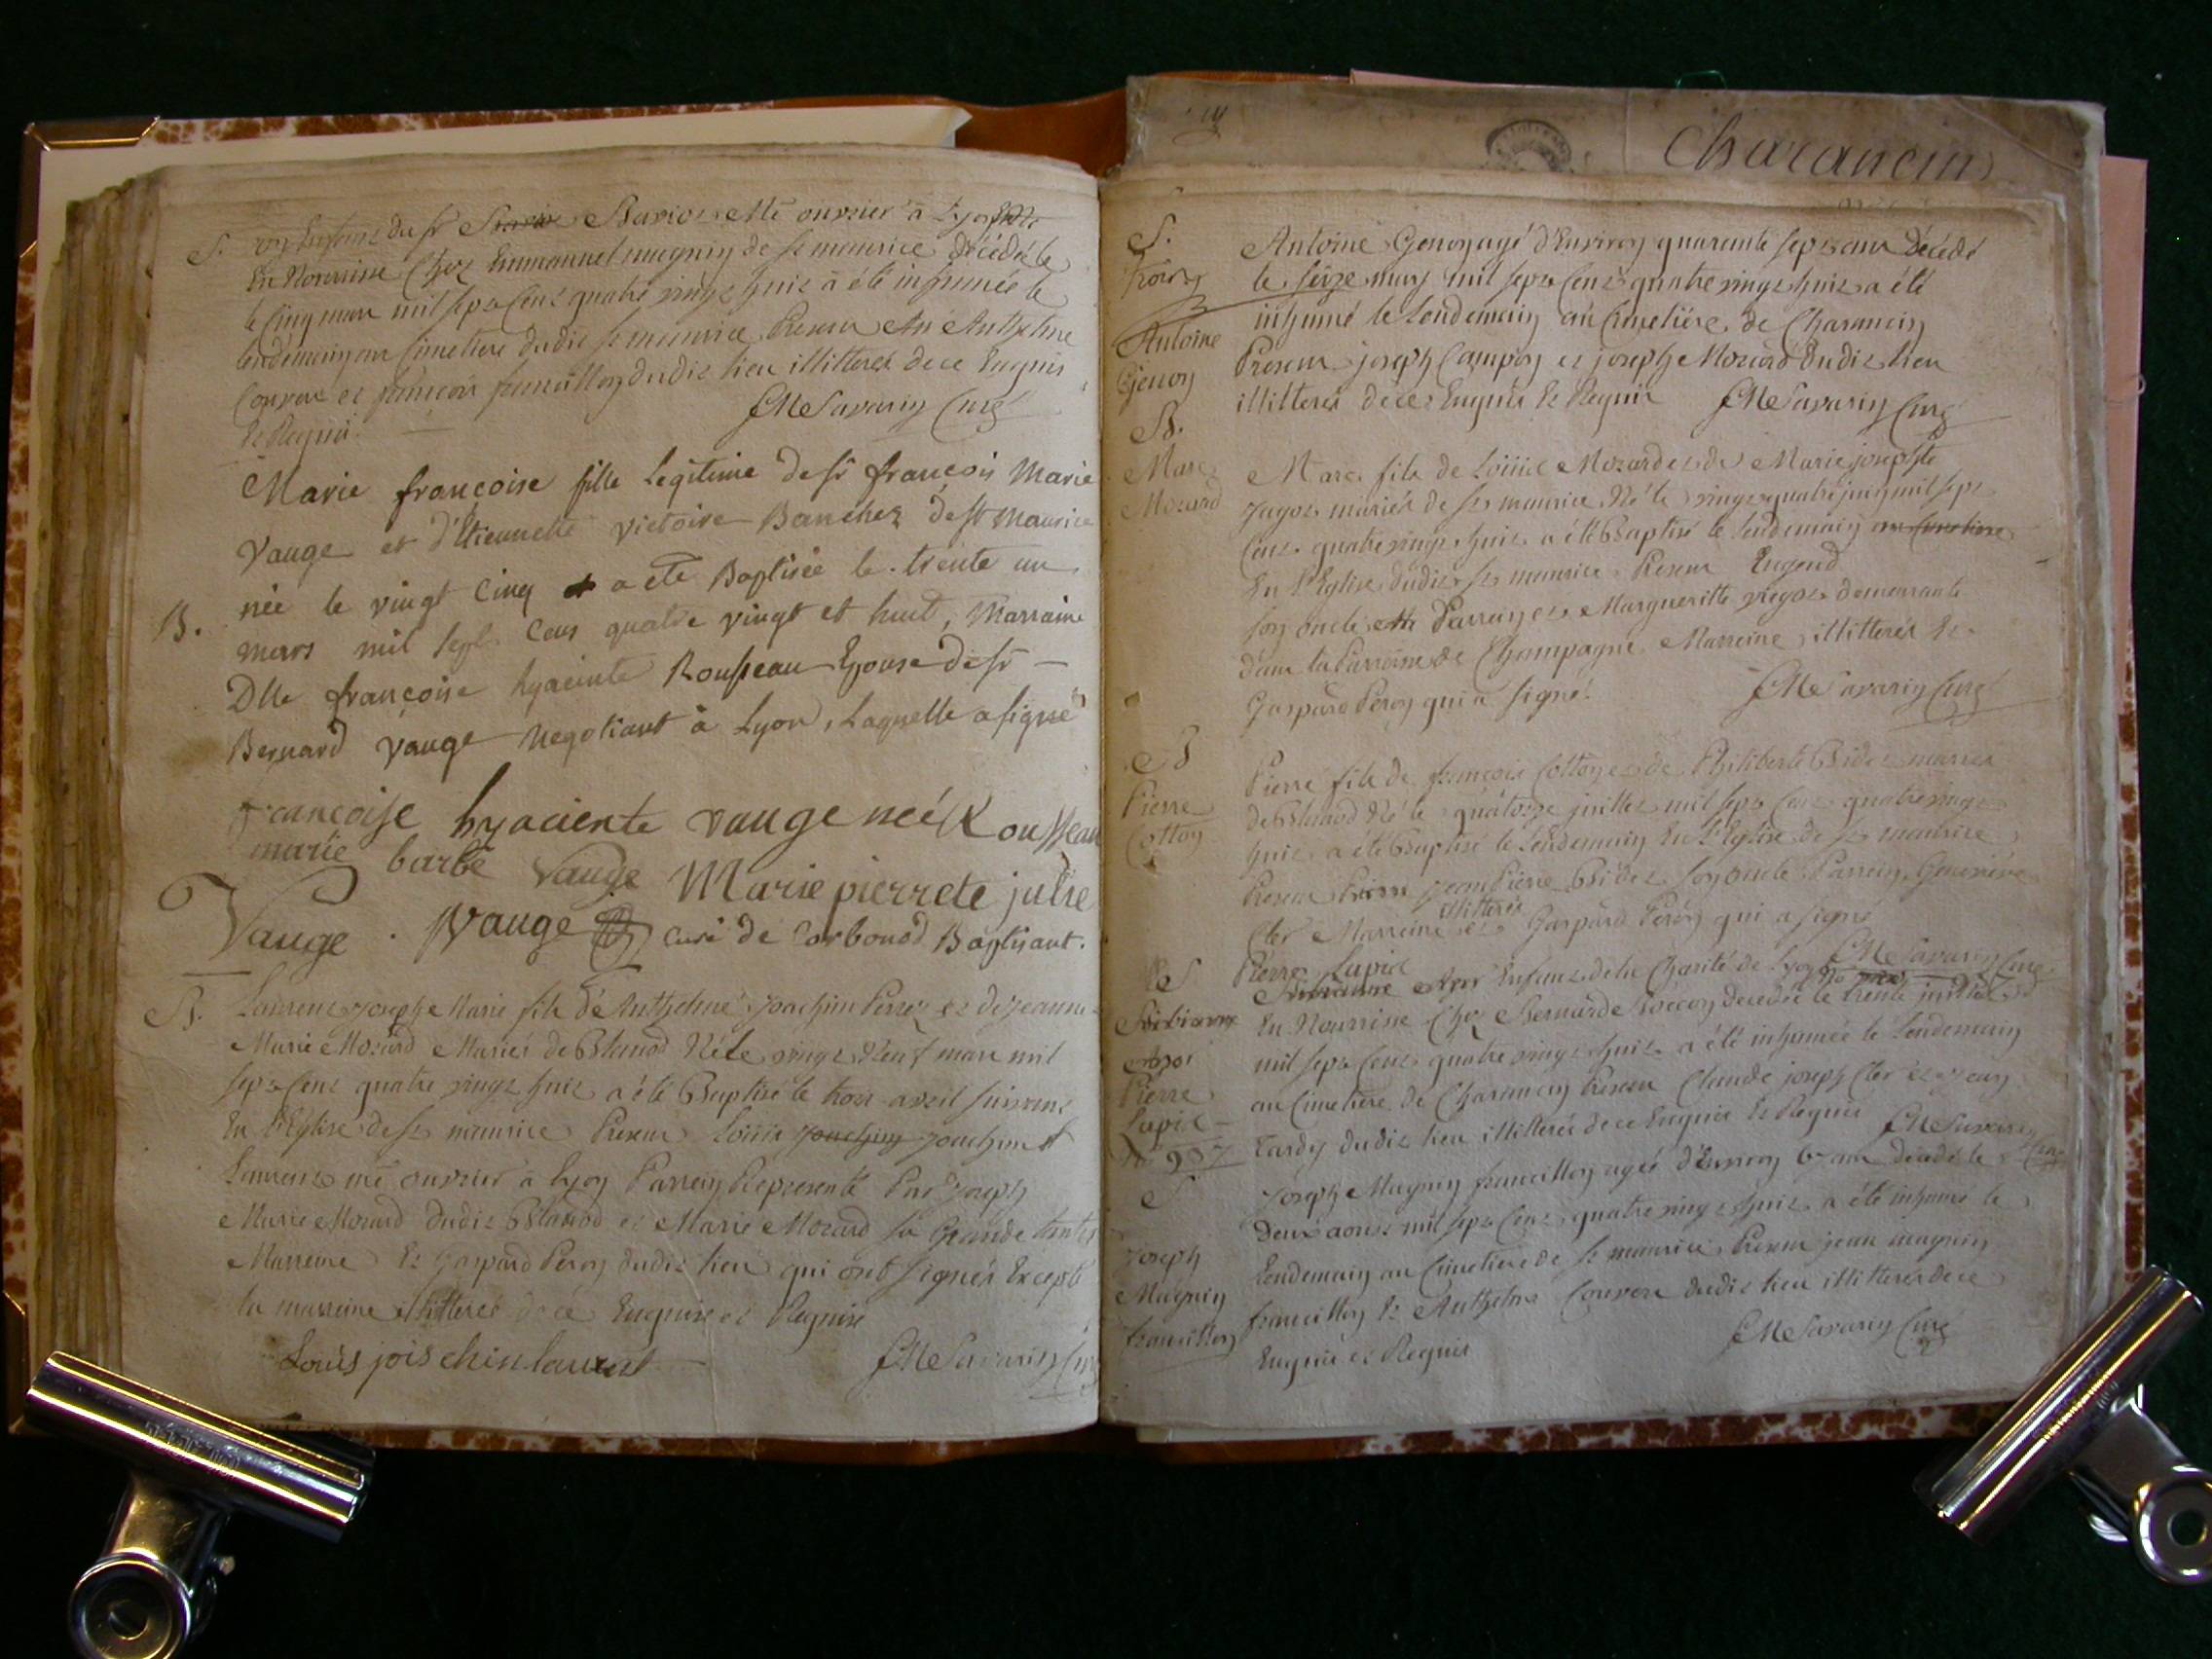 S. un Enfant du sr Barioz Me ouvrier à Lyon
En Nourrisse Chez Emmanuel magnin de st maurice décédé le
le Cinq mars mil sept Cent quatre vingt huit à été inhumée le
lendemain au Cimetiere dudit st maurice Presens Anthelme
Convert et françois francillon dudit lieu illitteres de ce Enquis
Et Requis.
JMe Savarin Curé
Marie françoise fille Legitime de sr françois Marie
Vauge et d'Etiennette victoire Banchez de st Maurice
née le vingt Cinq a eté Baptisée le trente un
B. mars mil sept Cens quatre vingt et huit, Marraine
Dlle françoise hyacinte Rousseau Epouse de sr
Bernard Vauge Negotiant à Lyon, Laquelle a signé
francoise hyaciente vauge neé Rousseau
marie barbe Vauge Marie pierrete julie
Vauge . Vauge curé de Corbonod Baptisant.
B. Laurent joseph Marie fils d'Anthelme joachim Perret et de jeanne
Marie Mozard Mariés de Blanod Né le vingt Neuf mars mil
sept Cent quatre vingt huit a été Baptisé le trois avril suivant
En l'Eglise de st maurice Presens Loüis joachim joachim
Laurent me ouvrier à Lyon Parrein Représenté Par joseph
Marie Mozard dudit Blanod et Marie Mozard sa Grande tante
Marreine Et Gaspard Peron dudit lieu qui ont signés Excepté
la marreine illitterée de ce Enquise et Requise
Louis joischin laurent
JMe Savarin Curé
Charancin
S.
trois
Antoine
Genon
Antoine Genon agé d'Environ quarante sept ans Décédé
le seize mars mil sept Cent quatre vingt huit a été
inhumé le Lendemain au Cimetiére de Charancin
Presens joseph Campon et joseph Mozard dudit lieu
illitterés de ce Enquis Et Requis JMe Savarin Curé
B.
Marc
Mozard
Marc fils de Loüis Mozard et de Marie josephte
jugoz mariés de st maurice Né le vingt quatre juin mil sept
Cent quatre vingt huit a été Baptisé le lendemain au Cimetiere
En l'Eglise dudit st maurice Presens Eugend
son oncle Parrain et Margueritte demeurante
dans la Parroisse de Champagne Marreine illitterés Et
Gaspard Peron qui a signé. JMe Savarin Curé
B
Pierre
Cotton
Pierre fils de françois Cotton et de Philiberte Bidet mariés
de Blanod Né le quatorze juillet mil sept Cent quatre vingt
huit a été Baptisé le lendemain En l'Eglise de st maurice
Presens jean Pierre Bidet son oncle Parrein, Genevieve
Cler Marreine illitterés et Gaspard Peron qui a signé
JMe Savarin Curé
S
Pierre
Lupic
No 937
Pierre Lupic Enfant de la Charité de Lyon
En Nourrisse Chez Bernard Boccon décédée le trente juillet
mil sept Cent quatre vingt huit a été inhumée le lendemain
au Cimetiére de Charancin Presens Claude joseph Cler et jean
tardy dudit lieu illitterés de ce Enquis Et Requis JMe Savarin
Curé
S
joseph
Magnin
francillon
joseph Magnin francillon agé d'Environ ans décédé le
deux aoust mil sept Cent quatre vingt huit a été inhumé le
Lendemain au Cimetiére de st maurice Presens jean magnin
francillon Et Anthelme Convert dudit lieu illitterés de ce
Enquis et Requis JMe Savarin Curé